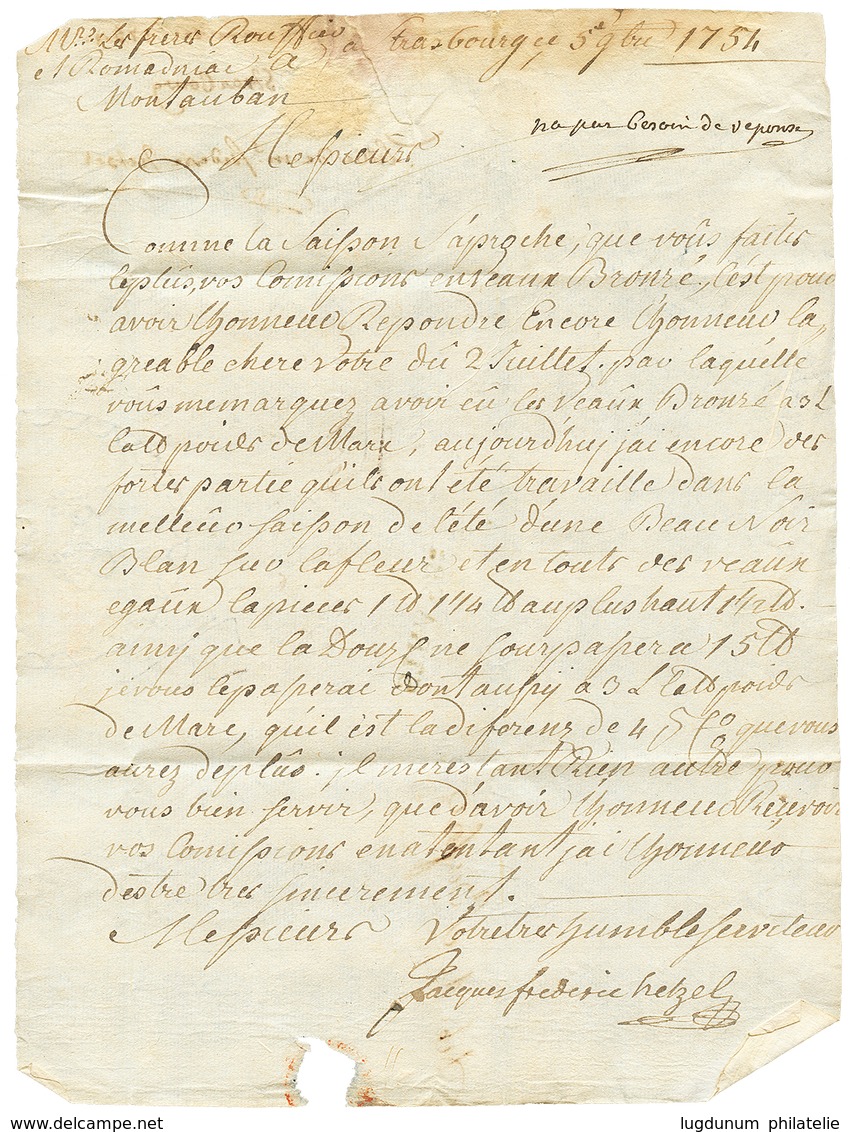 Mrs. Les freres Rouffio a Strasbourg ce 5e 9bre 1754
et Romadniac a
Montauban
na pas besoin de reponse
Messieurs
Comme la Saisson S'aproche, que vous faites
le plus, vos Comissions en veaux Bronzé, C'est pour
avoir lhonneur Repondre Encore lhonneur la
greable chere votre du 2 Juillet. par laquelle
vous me marquez avoir eû les veaux Bronzé a 3 L
la lb poids de Marc, aujourd'huj j'ai encore des
fortes partie qu'ils ont été travaille dans la
melleur saisson de l'été d'une Beau Noir
Blan sur la fleur et en touts des veaux
egaux la pieces 1 lb 1 1/4 lb au plus haut 1 1/2 lb.
ainsy que la Douzaine sourpasera 15 lb
je vous lé paserai Dont aussy a 3 L la lb poids
de Marc, qu'il est la diferenz de 4 5 que vous
aurez de plus. jl me restant Rien autre pour
vous bien servir, que d'avoir lhonneur Recevoir
vos Comissions en atontant jai lhonneur
d'estre tres sincerement.
Messieurs Votre tres humble serviteur
Jacques frederic hetzel
www.delcampe.net lugdunum philatelie